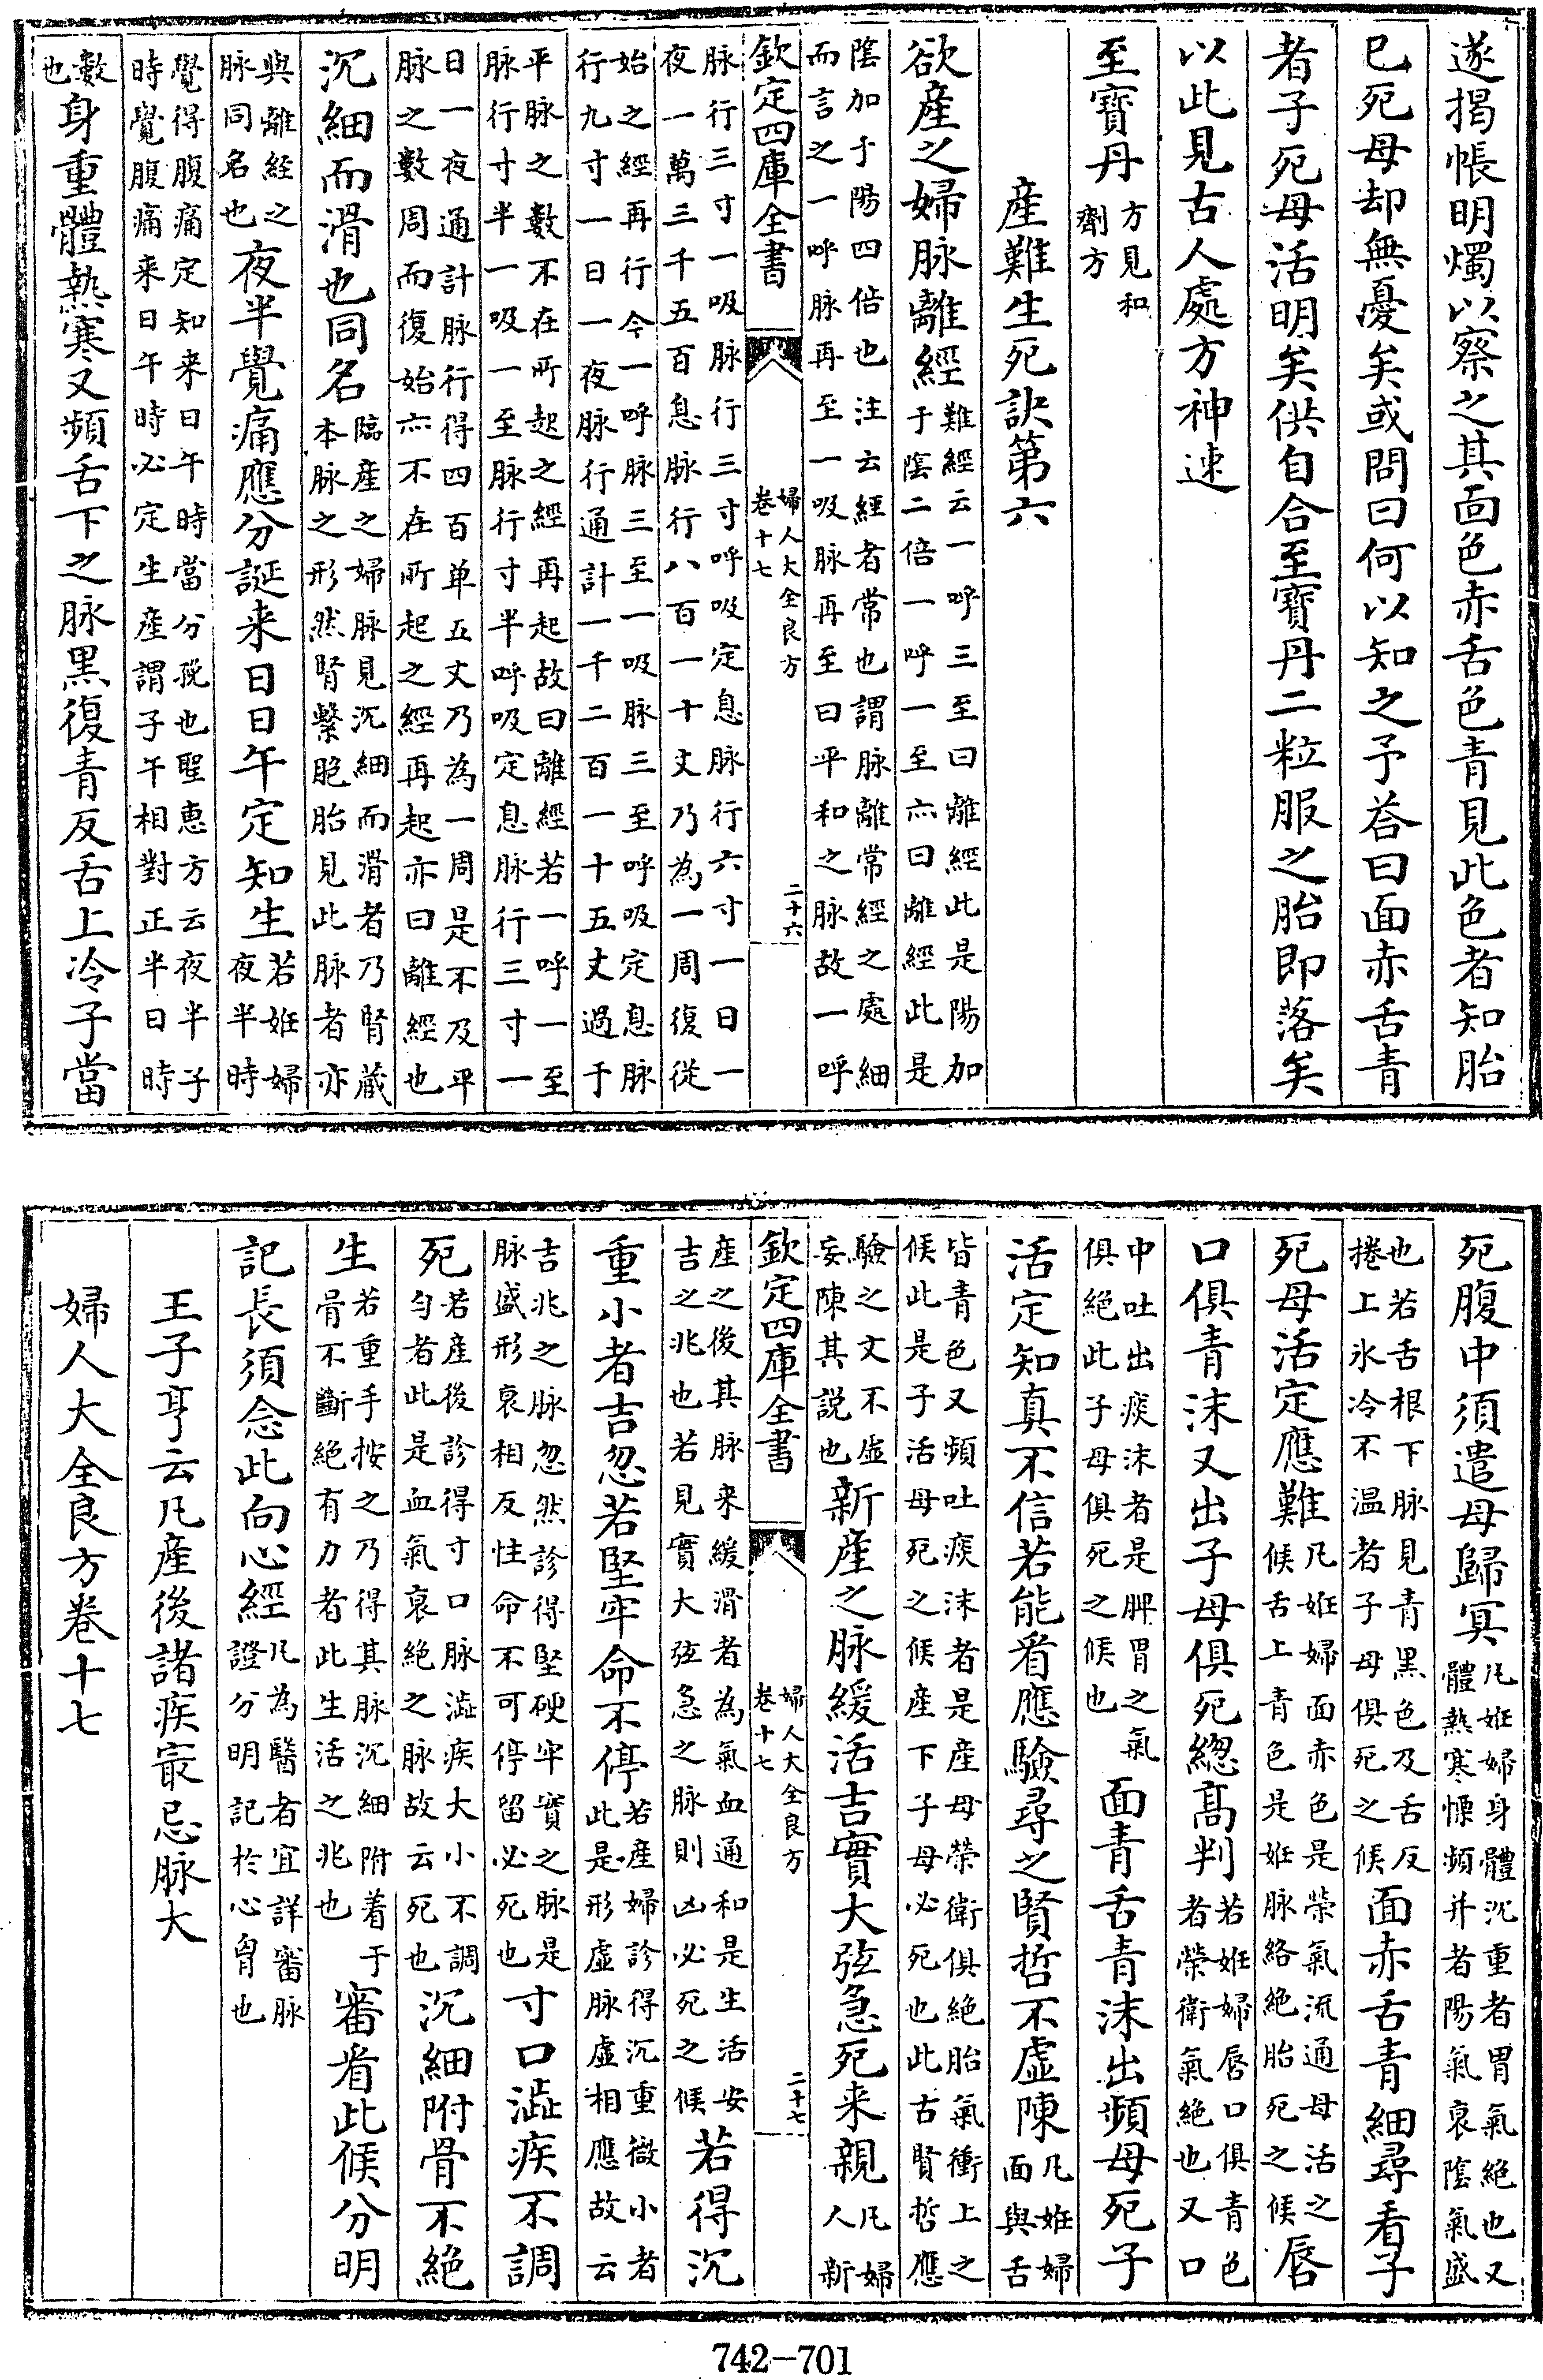 遂揭帳明燭以察之其面色赤舌色青見此色者知胎
已死母却無憂矣或問曰何以知之予荅曰面赤舌青
者子死母活明矣供自合至寳丹二粒服之胎即落矣
以此見古人處方神速
至寳丹方見和劑方
産難生死訣第六
欲産之婦脉離經難經云一呼三至曰離經此是陽加于陰二倍一呼一至亦曰離經此是
陰加于陽四倍也注云經者常也謂脉離常經之處細而言之一呼脉再至一吸脉再至曰平和之脉故一呼
欽定四庫全書
婦人大全良方
卷十七
二十六
脉行三寸一吸脉行三寸呼吸定息脉行六寸一日一夜一萬三千五百息脉行八百一十丈乃為一周復從
始之經再行今一呼脉三至一吸脉三至呼吸定息脉行九寸一日一夜脉行通計一千二百一十五丈過于
平脉之數不在所起之經再起故曰離經若一呼一至脉行寸半一吸一至脉行寸半呼吸定息脉行三寸一
日一夜通計脉行得四百单五丈乃為一周是不及平脉之數周而復始亦不在所起之經再起亦曰離經也
沉細而滑也同名臨産之婦脉見沉細而滑者乃腎蔵本脉之形然腎繫胞胎見此脉者亦
與離經之脉同名也夜半覺痛應分誕来日日午定知生若姙婦夜半時
覺得腹痛定知来日午時當分㝃也聖惠方云夜半子時覺腹痛来日午時必定生産謂子午相對正半日時
數也身重體熱寒又頻舌下之脉黒復青反舌上冷子當
死腹中須遣母歸冥凡姙婦身體沉重者胃氣絶也又體熱寒慄頻并者陽氣衰陰氣盛
也若舌根下脉見青黒色及舌反捲上氷冷不温者子母俱死之候面赤舌青細尋看子
死母活定應難凡姙婦面赤色是榮氣流通母活之候舌上青色是姙脉絡絶胎死之候唇
口俱青沫又出子母俱死緫髙判若姙婦唇口俱青色者榮衛氣絶也又口
中吐出痰沫者是脾胃之氣俱絶此子母俱死之候也面青舌青沫出頻母死子
活定知真不信若能看應驗尋之賢哲不虚陳凡姙婦面與舌
皆青色又頻吐痰沫者是産母榮衛俱絶胎氣衝上之候此是子活母死之候産下子母必死也此古賢哲應
驗之文不虚妄陳其説也新産之脉緩活吉實大弦急死来親凡婦人新
欽定四庫全書
婦人大全良方
卷十七
二十七
産之後其脉来緩滑者為氣血通和是生活安吉之兆也若見實大弦急之脉則凶必死之候若得沉
重小者吉忽若堅牢命不停若産婦診得沉重微小者此是形虚脉虚相應故云
吉兆之脉忽然診得堅硬牢實之脉是脉盛形衰相反性命不可停留必死也寸口澁疾不調
死若産後診得寸口脉澁疾大小不調匀者此是血氣衰絶之脉故云死也沉細附骨不絶
生若重手按之乃得其脉沉細附着于骨不斷絶有力者此生活之兆也審看此候分明
記長須念此向心經凡為醫者宜詳審脉證分明記於心胷也
王子亨云凡産後諸疾㝡忌脉大
婦人大全良方卷十七
742—701